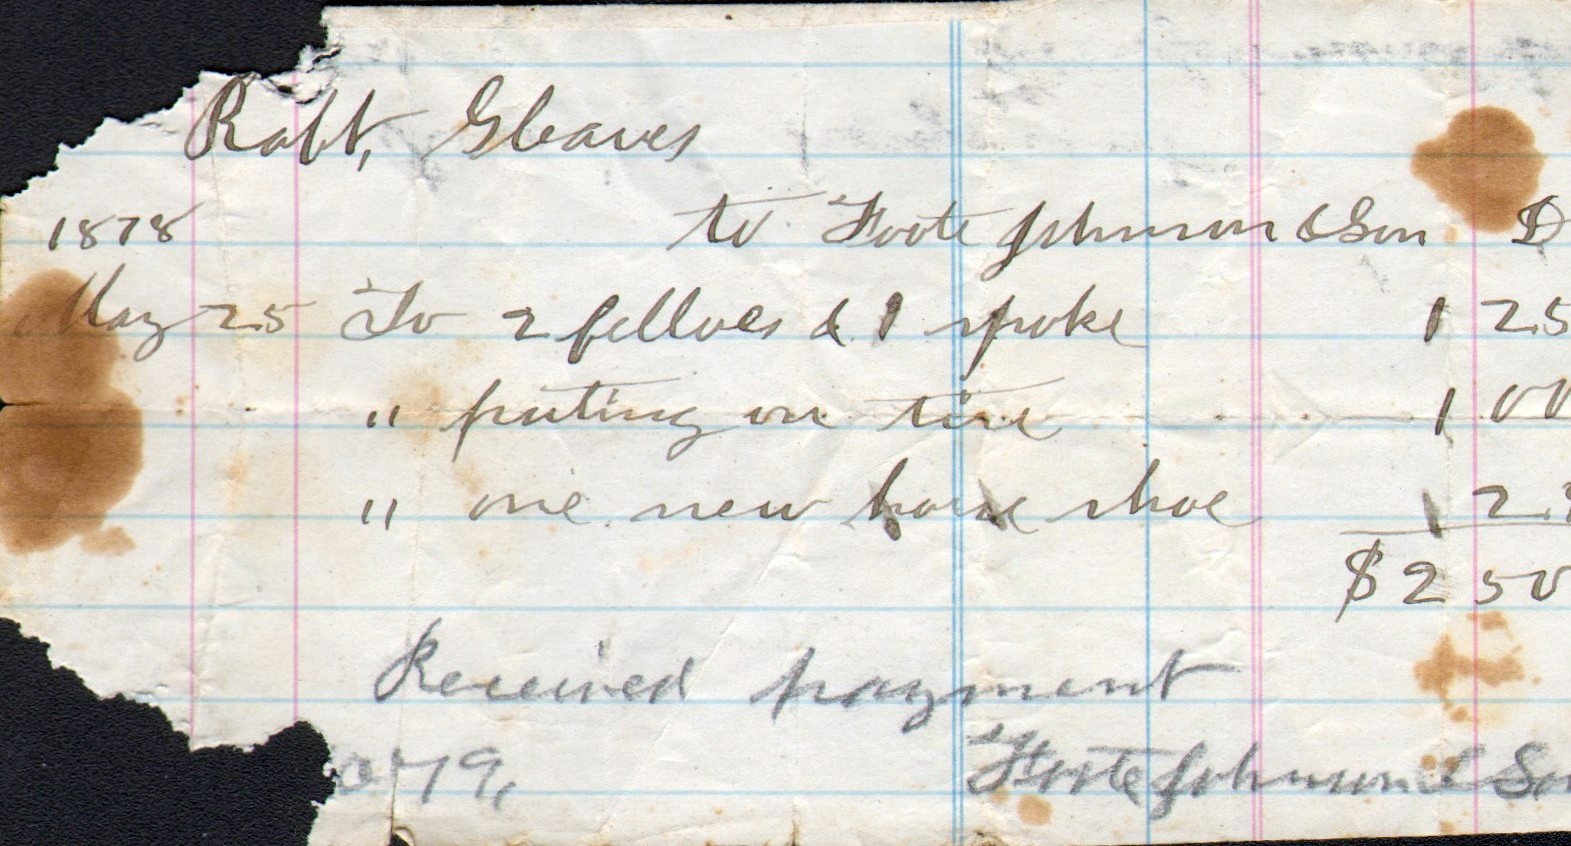 Robt, Gleaves
1878 to Foote Johnson & Son D
May 25 To 2 felloes & 1 spoke 1 25
" puting on tire 1 00
" one new horse shoe 2
$2 50
Received payment
79, Foote Johnson & So